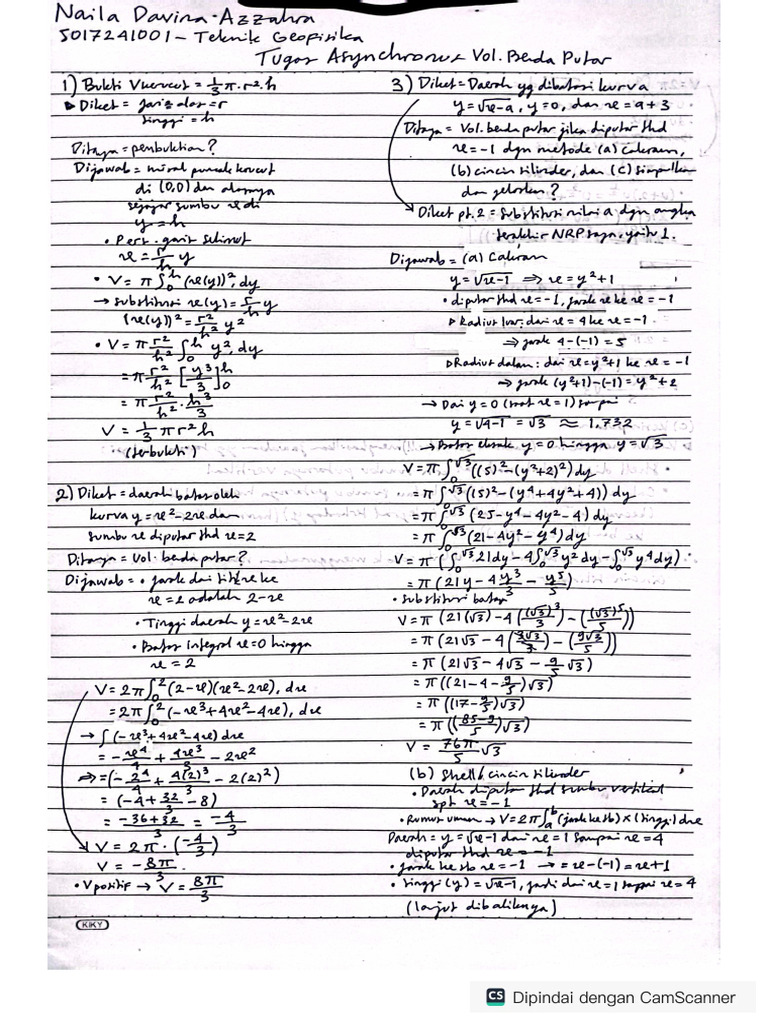 Naila Davina Azzahra
5017241001 - Teknik Geofisika
Tugas Asynchronus Vol. Benda Putar
1) Bukti Vkerucut = 1/3 π . r² . h
▶ Diket = jari² alas = r
tinggi = h
Ditanya = pembuktian?
Dijawab = misal puncak kerucut
di (0,0) dan alasnya
sejajar sumbu x di
y = h
• Pers. garis selimut
x = r/h y
• V = π ∫₀ʰ (x(y))², dy
→ substitusi x(y) = r/h y
(x(y))² = r²/h² y²
• V = π r²/h² ∫₀ʰ y², dy
= π r²/h² [y³/3]₀ʰ
= π r²/h² . h³/3
V = 1/3 π r² h
(terbukti)
2) Diket = daerah batas oleh
kurva y = x² - 2x dan
sumbu x diputar thd x = 2
Ditanya = Vol. benda putar?
Dijawab = • jarak dari titik x ke
x = 2 adalah 2 - x
• Tinggi daerah y = x² - 2x
• Batas integral x = 0 hingga
x = 2
V = 2π ∫₀² (2-x)(x²-2x), dx
= 2π ∫₀² (-x³+4x²-4x), dx
→ ∫(-x³+4x²-4x) dx
= -x⁴/4 + 4x³/3 - 2x²
⇒ = (-2⁴/4 + 4(2)³/3 - 2(2²)
= (-4 + 32/3 - 8)
= (-36+32)/3 = -4/3
V = 2π . (-4/3)
V = -8π/3
• V positif → V = 8π/3
3) Diket = Daerah yg dibatasi kurva
y = √x-a, y = 0, dan x = a + 3
Ditanya = Vol. benda putar jika diputar thd
x = -1 dgn metode (a) cakram,
(b) cincin silinder, dan (c) simpulkan
dan jelaskan?
Diket pt. 2 = substitusi nilai a dgn angka
terakhir NRP saya, yaitu 1.
Dijawab = (a) Cakram
y = √x-1 ⇒ x = y² + 1
• diputar thd x = -1, jarak x ke x = -1
▶ Radius luar: dari x = 4 ke x = -1
⇒ jarak 4 - (-1) = 5
▷ Radius dalam: dari x = y²+1 ke x = -1
⇒ jarak (y²+1) - (-1) = y² + 2
→ Dari y = 0 (saat x = 1) sampai
y = √4-1 = √3 ≈ 1.732
→ Batas eksak y = 0 hingga y = √3
V = π ∫₀^√3 ((5)² - (y²+2)²) dy
= π ∫₀^√3 (5)² - (y⁴+4y²+4)) dy
= π ∫₀^√3 (25 - y⁴ - 4y² - 4) dy
= π ∫₀^√3 (21 - 4y² - y⁴) dy
V = π (∫₀^√3 21 dy - 4∫₀^√3 y² dy - ∫₀^√3 y⁴ dy)
= π (21y - 4 y³/3 - y⁵/5)
• Substitusi batas
V = π (21(√3) - 4((√3)³/3) - ((√3)⁵/5))
= π (21√3 - 4(3√3/3) - (9√3/5))
= π (21√3 - 4√3 - 9/5 √3)
= π ((21-4-9/5)√3)
= π ((17-9/5)√3)
= π ((85-9/5)√3)
V = 76π/5 √3
(b) Shell / cincin silinder
• Daerah diputar thd sumbu vertikal
spt x = -1
• Rumus umum → V = 2π ∫ₐᵇ (jarak ke sb) × (tinggi) dx
Daerah = y = √x-1 dari x = 1 sampai x = 4
diputar thd x = -1
• jarak ke sb x = -1 → = x - (-1) = x + 1
• tinggi (y) = √x-1, jadi dari x = 1 sampai x = 4
(lanjut dibaliknya)
KIKY
CS Dipindai dengan CamScanner